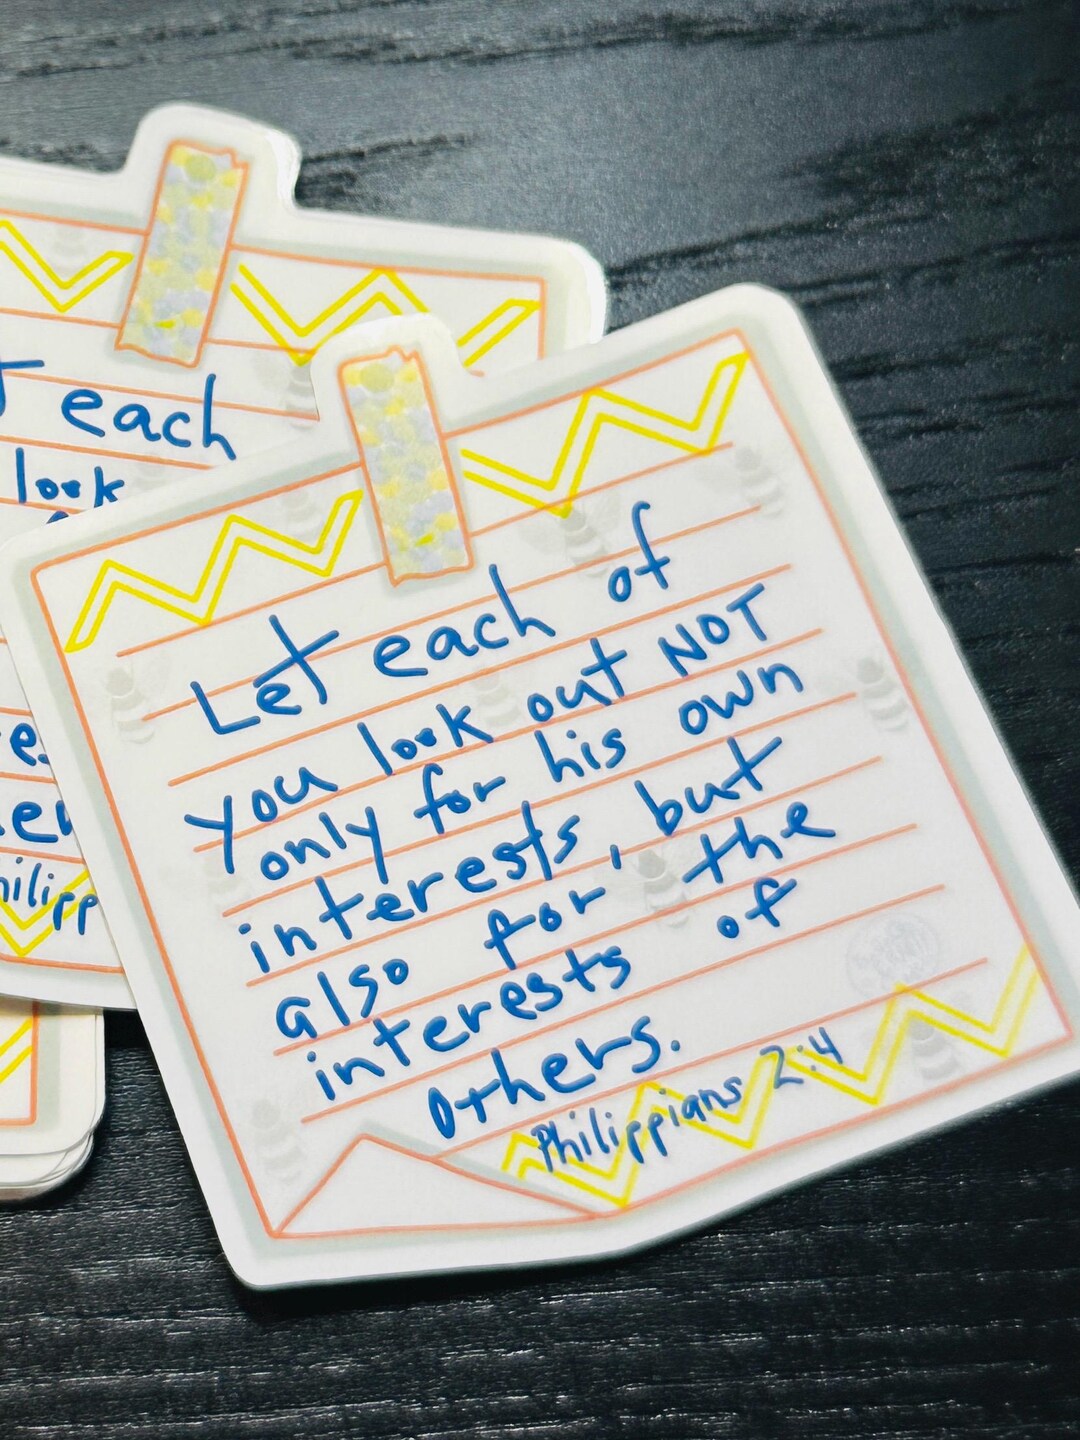 Let each of
you look out NOT
only for his own
interests, but
also for the
interests of
others.
Philippians 2:4
each
look